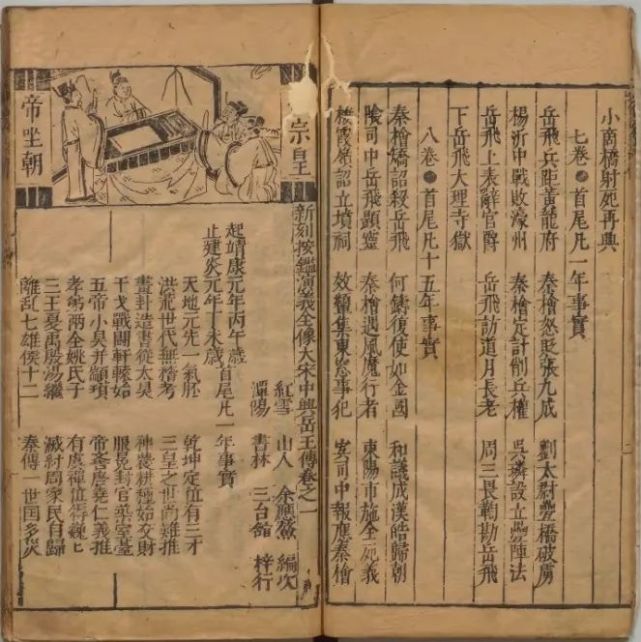 小商橋射死再興
七卷 首尾凡一年事實
岳飛兵距黃龍府 秦檜怒貶張九成 劉太尉疊橋破虜
楊沂中戰敗濠州 秦檜定計削兵權 吳璘設立疊陣法
岳飛上表辭官爵 岳飛訪道月長老 周三畏鞫勘岳飛
下岳飛大理寺獄
八卷 首尾凡十五年事實
秦檜矯詔殺岳飛 何鑄復使如金國 和議成洪皓歸朝
陰司中岳飛顯靈 秦檜遇風魔行者 東陽市施全死義
棲霞嶺詔立墳祠 效顰集東窓事犯 冥司中報應秦檜
宗皇
帝坐朝
新刻按鑑演義全像大宋中興岳王傳卷之一
紅雪 山人 余應鰲 編次
潭陽 書林 三台館 梓行
起靖康元年丙午歲
止建炎元年丁未歲 首尾凡一年事實
天地元先一氣胚 乾坤定位有三才
洪荒世代無稽考 三皇之世尚難推
畫卦造書從太昊 神農耕種始交財
干戈戰鬭軒轅始 服冕封官築室臺
五帝小昊并顓頊 帝嚳唐堯仁義推
孝弟兩全姚氏子 有虞禪位巍匕
三王夏禹殷湯繼 滅紂周家民自歸
離乱七雄侯十二 秦傳一世国多災